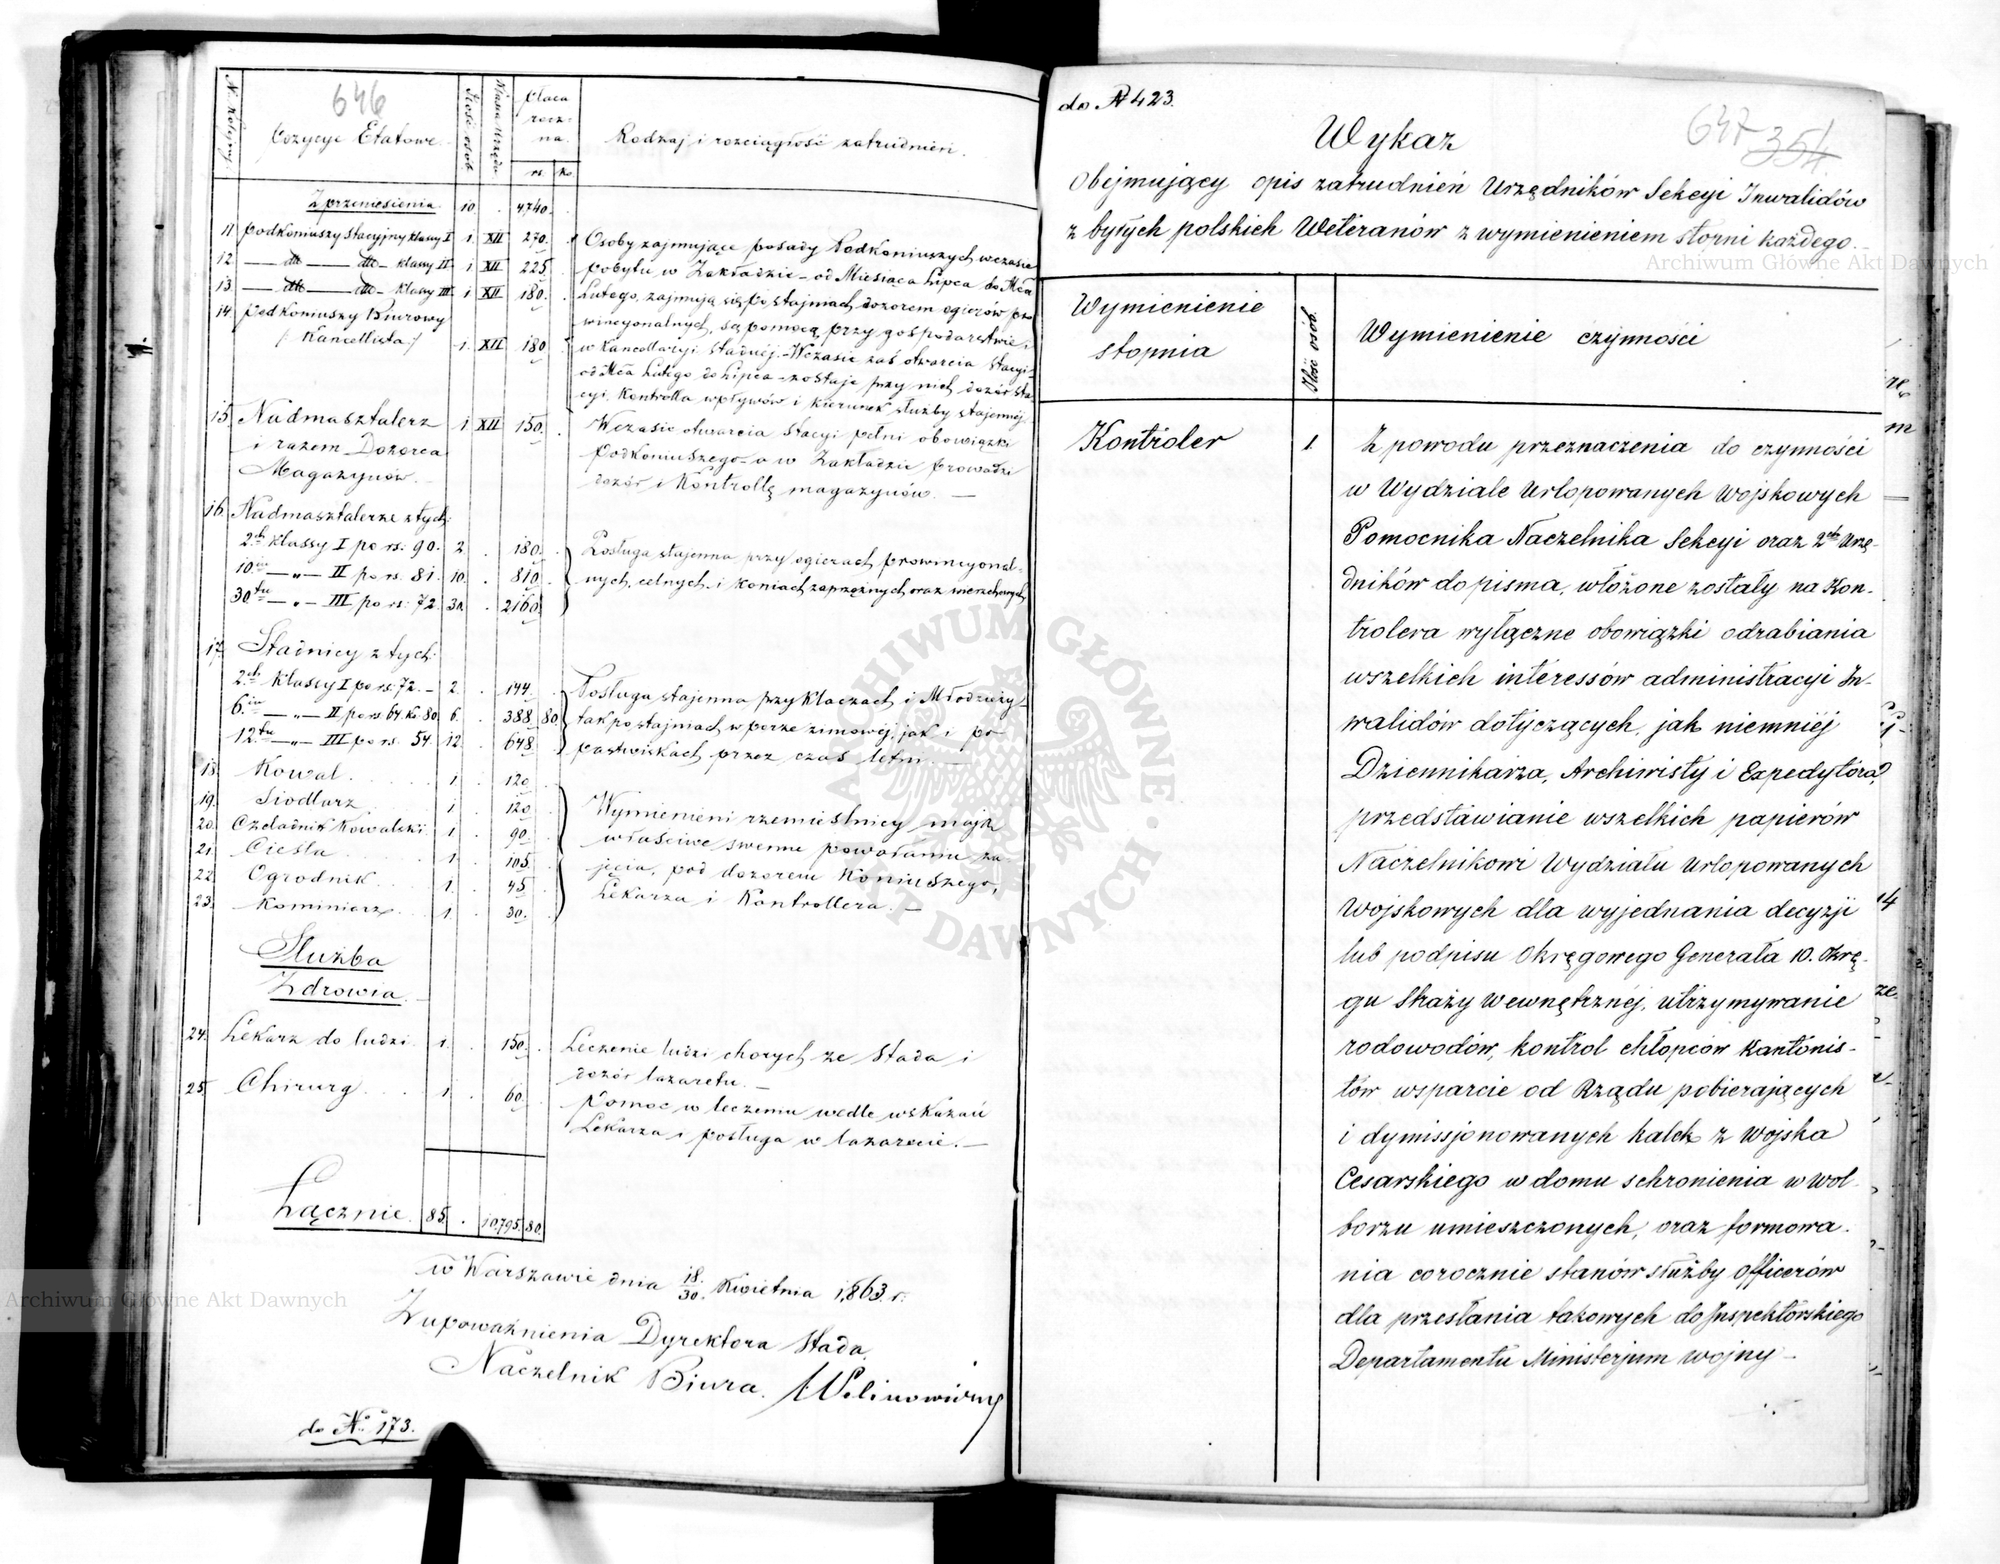 646
N. Kolejny
Pozycye Etatowe.
Ilość osób
Klassa urzędu
Płaca
rocz-
na.
rs. ko.
Rodzaj i rozciągłość zatrudnień.
Z przeniesienia. 10. . 4,740.
11. Podkoniuszy stacyjny klassy I 1. XII 270. Osoby zajmujące posady Podkoniuszych wczasie
12. — dtto — dtto — klassy II 1 XII 225 pobytu w Zakładzie – od Miesiąca Lipca do M-ca
13. — dtto — dtto – klassy III 1 XII 180. Lutego, zajmują się po stajniach dozorem ogierów pro
14. Podkoniuszy Biurowy wincyonalnych, są pomocą przy gospodarstwie i
/: Kancellista :/ 1. XII 180 w Kancellaryi stadnéj. – Wczasie zaś otwarcia stacyi
od M-ca Lutego do Lipca – zostaje przy nich dozór sta
cyi, Kontrolla wpływów i kierunek służby stajennéj.
15. Nadmasztalerz 1 XII 150. Wczasie otwarcia stacyi pełni obowiązki
i razem Dozorca Podkoniuszego – a w Zakładzie prowadzi
Magazynów. — dozór i Kontrollę magazynów. —
16. Nadmasztalerze z tych:
2ch klassy I po rs. 90. 2. . 180. Posługa stajenna przy ogierach prowincyonal-
10iu — „ — II po rs. 81. 10. . 810. nych, celnych i koniach zaprzężnych oraz wierzchowych
30tu — „ — III po rs. 72. 30. . 2160.
17. Stadnicy z tych:
2ch klassy I po rs. 72. – 2. . 144. Posługa stajenna przy Klaczach i Młodzieży
6iu — „ — II po rs. 64. Ko 80. 6. . 388. 80. tak po stajniach w porze zimowéj, jak i po
12tu — „ — III po rs. 54. 12. . 648. pastwiskach przez czas letni. —
18. Kowal. 1. . 120
19. Siodlarz 1. . 120 Wymienieni rzemieślnicy mają
20. Czeladnik Kowalski. 1. . 90. właściwe swemu powołaniu za-
21. Cieśla 1. . 105. jęcia, pod dozorem Koniuszego,
22. Ogrodnik 1. . 45 Lekarza i Kontrollera. —
23. Kominiarz 1. . 30.
Służba
Zdrowia.
24. Lekarz do ludzi 1. . 150. Leczenie ludzi chorych ze Stada i
dozór lazaretu. —
25. Chirurg 1. . 60. Pomoc w leczeniu wedle wskazań
Lekarza i posługa w lazarecie. —
Łącznie. 85. . 10,795. 80.
w Warszawie dnia 18./30. Kwietnia 1,863. r.
Z upoważnienia Dyrektora Stada,
Naczelnik Biura.
do No 173.
do N 423.
647
354
Wykaz
Obejmujący opis zatrudnień Urzędników Sekcyi Inwalidów
z byłych polskich Weteranów z wymienieniem stopni każdego. –
Wymienienie
stopnia
Ilość osób.
Wymienienie czynności
Kontroler 1. Z powodu przeznaczenia do czynności
w Wydziale Urlopowanych Wojskowych
Pomocnika Naczelnika Sekcyi oraz 2ch Urzę-
dników do pisma, włożone zostały na Kon-
trolera wyłączne obowiązki odrabiania
wszelkich interessów administracyi In-
walidów dotyczących, jak niemniéj
Dziennikarza, Archiwisty i Expedytora,
przedstawianie wszelkich papierów
Naczelnikowi Wydziału Urlopowanych
Wojskowych dla wyjednania decyzji
lub podpisu Okręgowego Generała 10. Okrę-
gu Straży Wewnętrznéj, utrzymywanie
rodowodów, kontrol chłopców Kantonis-
tów wsparcie od Rządu pobierających
i dymissjonowanych kalek z Wojska
Cesarskiego w domu schronienia w Wol-
borzu umieszczonych, oraz formowa-
nia corocznie stanów służby Officerów
dla przesłania takowych do Inspektorskiego
Departamentu Ministerjum Wojny –
Archiwum Główne Akt Dawnych
ARCHIWUM GŁÓWNE AKT DAWNYCH
Archiwum Główne Akt Dawnych